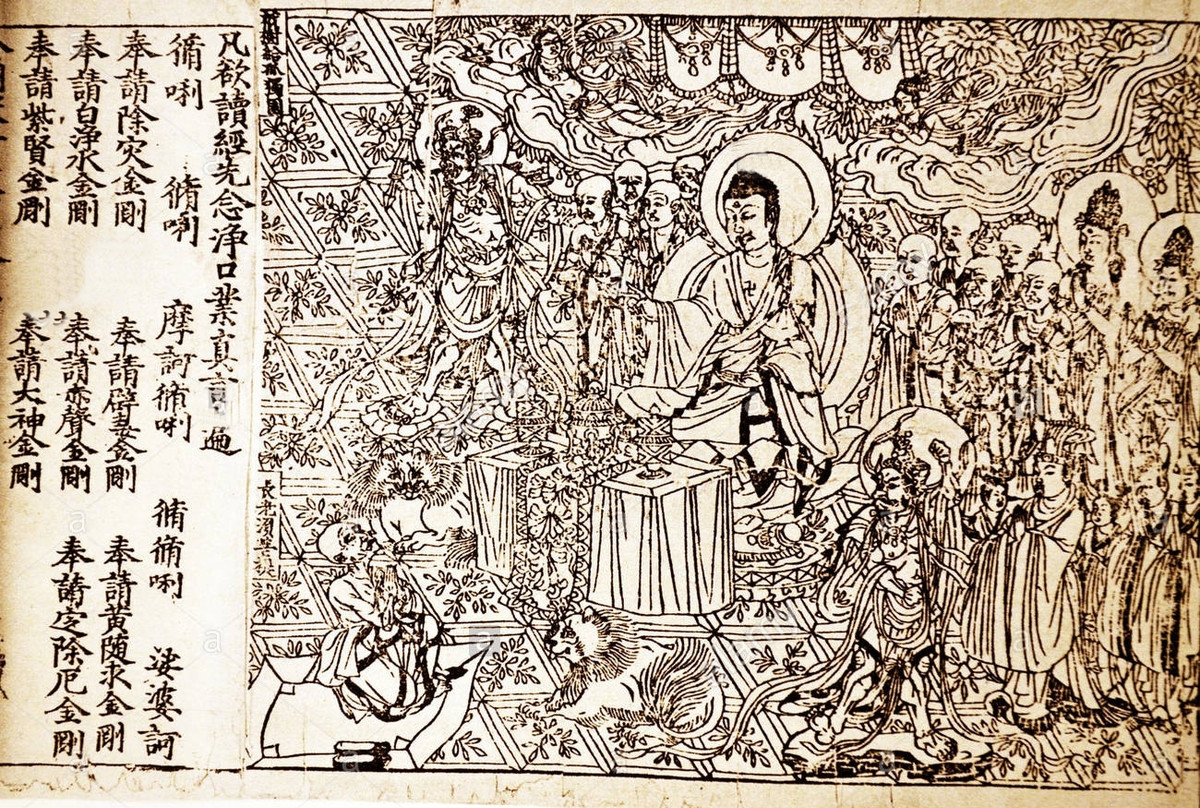 祇樹給孤獨園
長老須菩提
凡欲讀經先念浄口業真言一遍
脩唎 脩唎 摩訶脩唎 脩脩唎 娑婆訶
奉請除灾金剛 奉請辟毒金剛 奉請黃随求金剛
奉請白浄水金剛 奉請赤聲金剛 奉請定除厄金剛
奉請紫賢金剛 奉請大神金剛